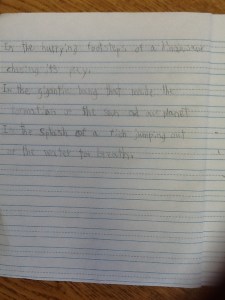 In the hurrying footsteps of a
chasing its prey.
In the gigantic bang that made the
the sun and our planet
In the splash of a fish jumping out
of the water for breath.